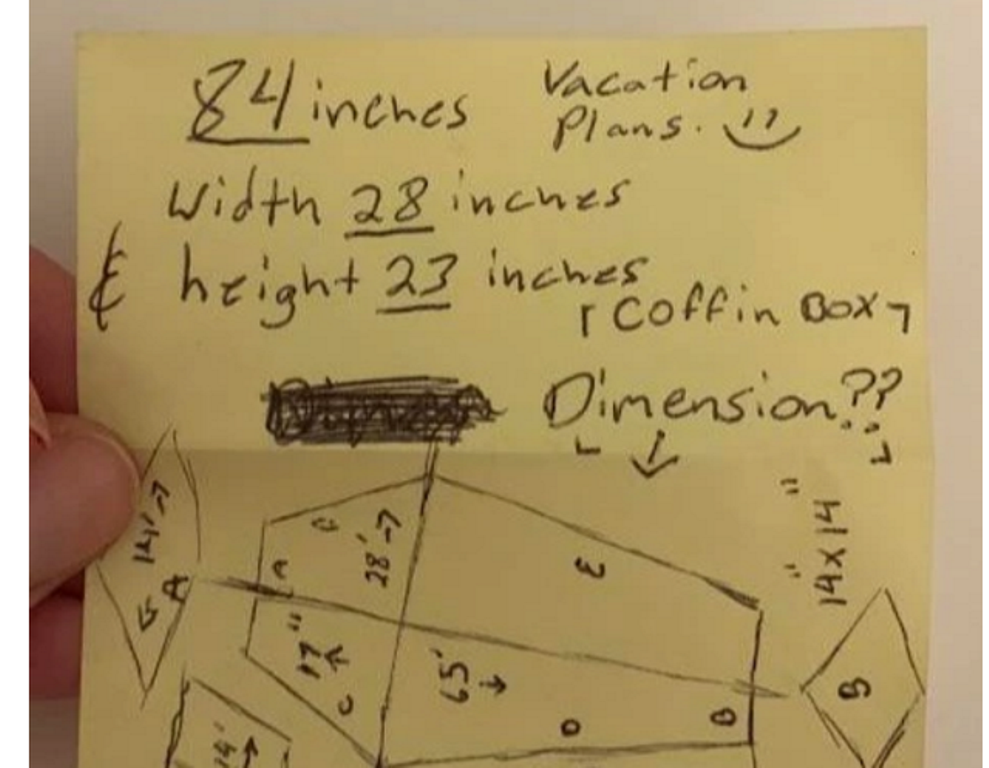 84 inches
Vacation
Plans.
Width 28 inches
& height 23 inches
⌈Coffin Box⌉
Dimension??
14"
14x14
"
"
G
A
C
28'
A
E
17"
C
65'
D
B
B
14'